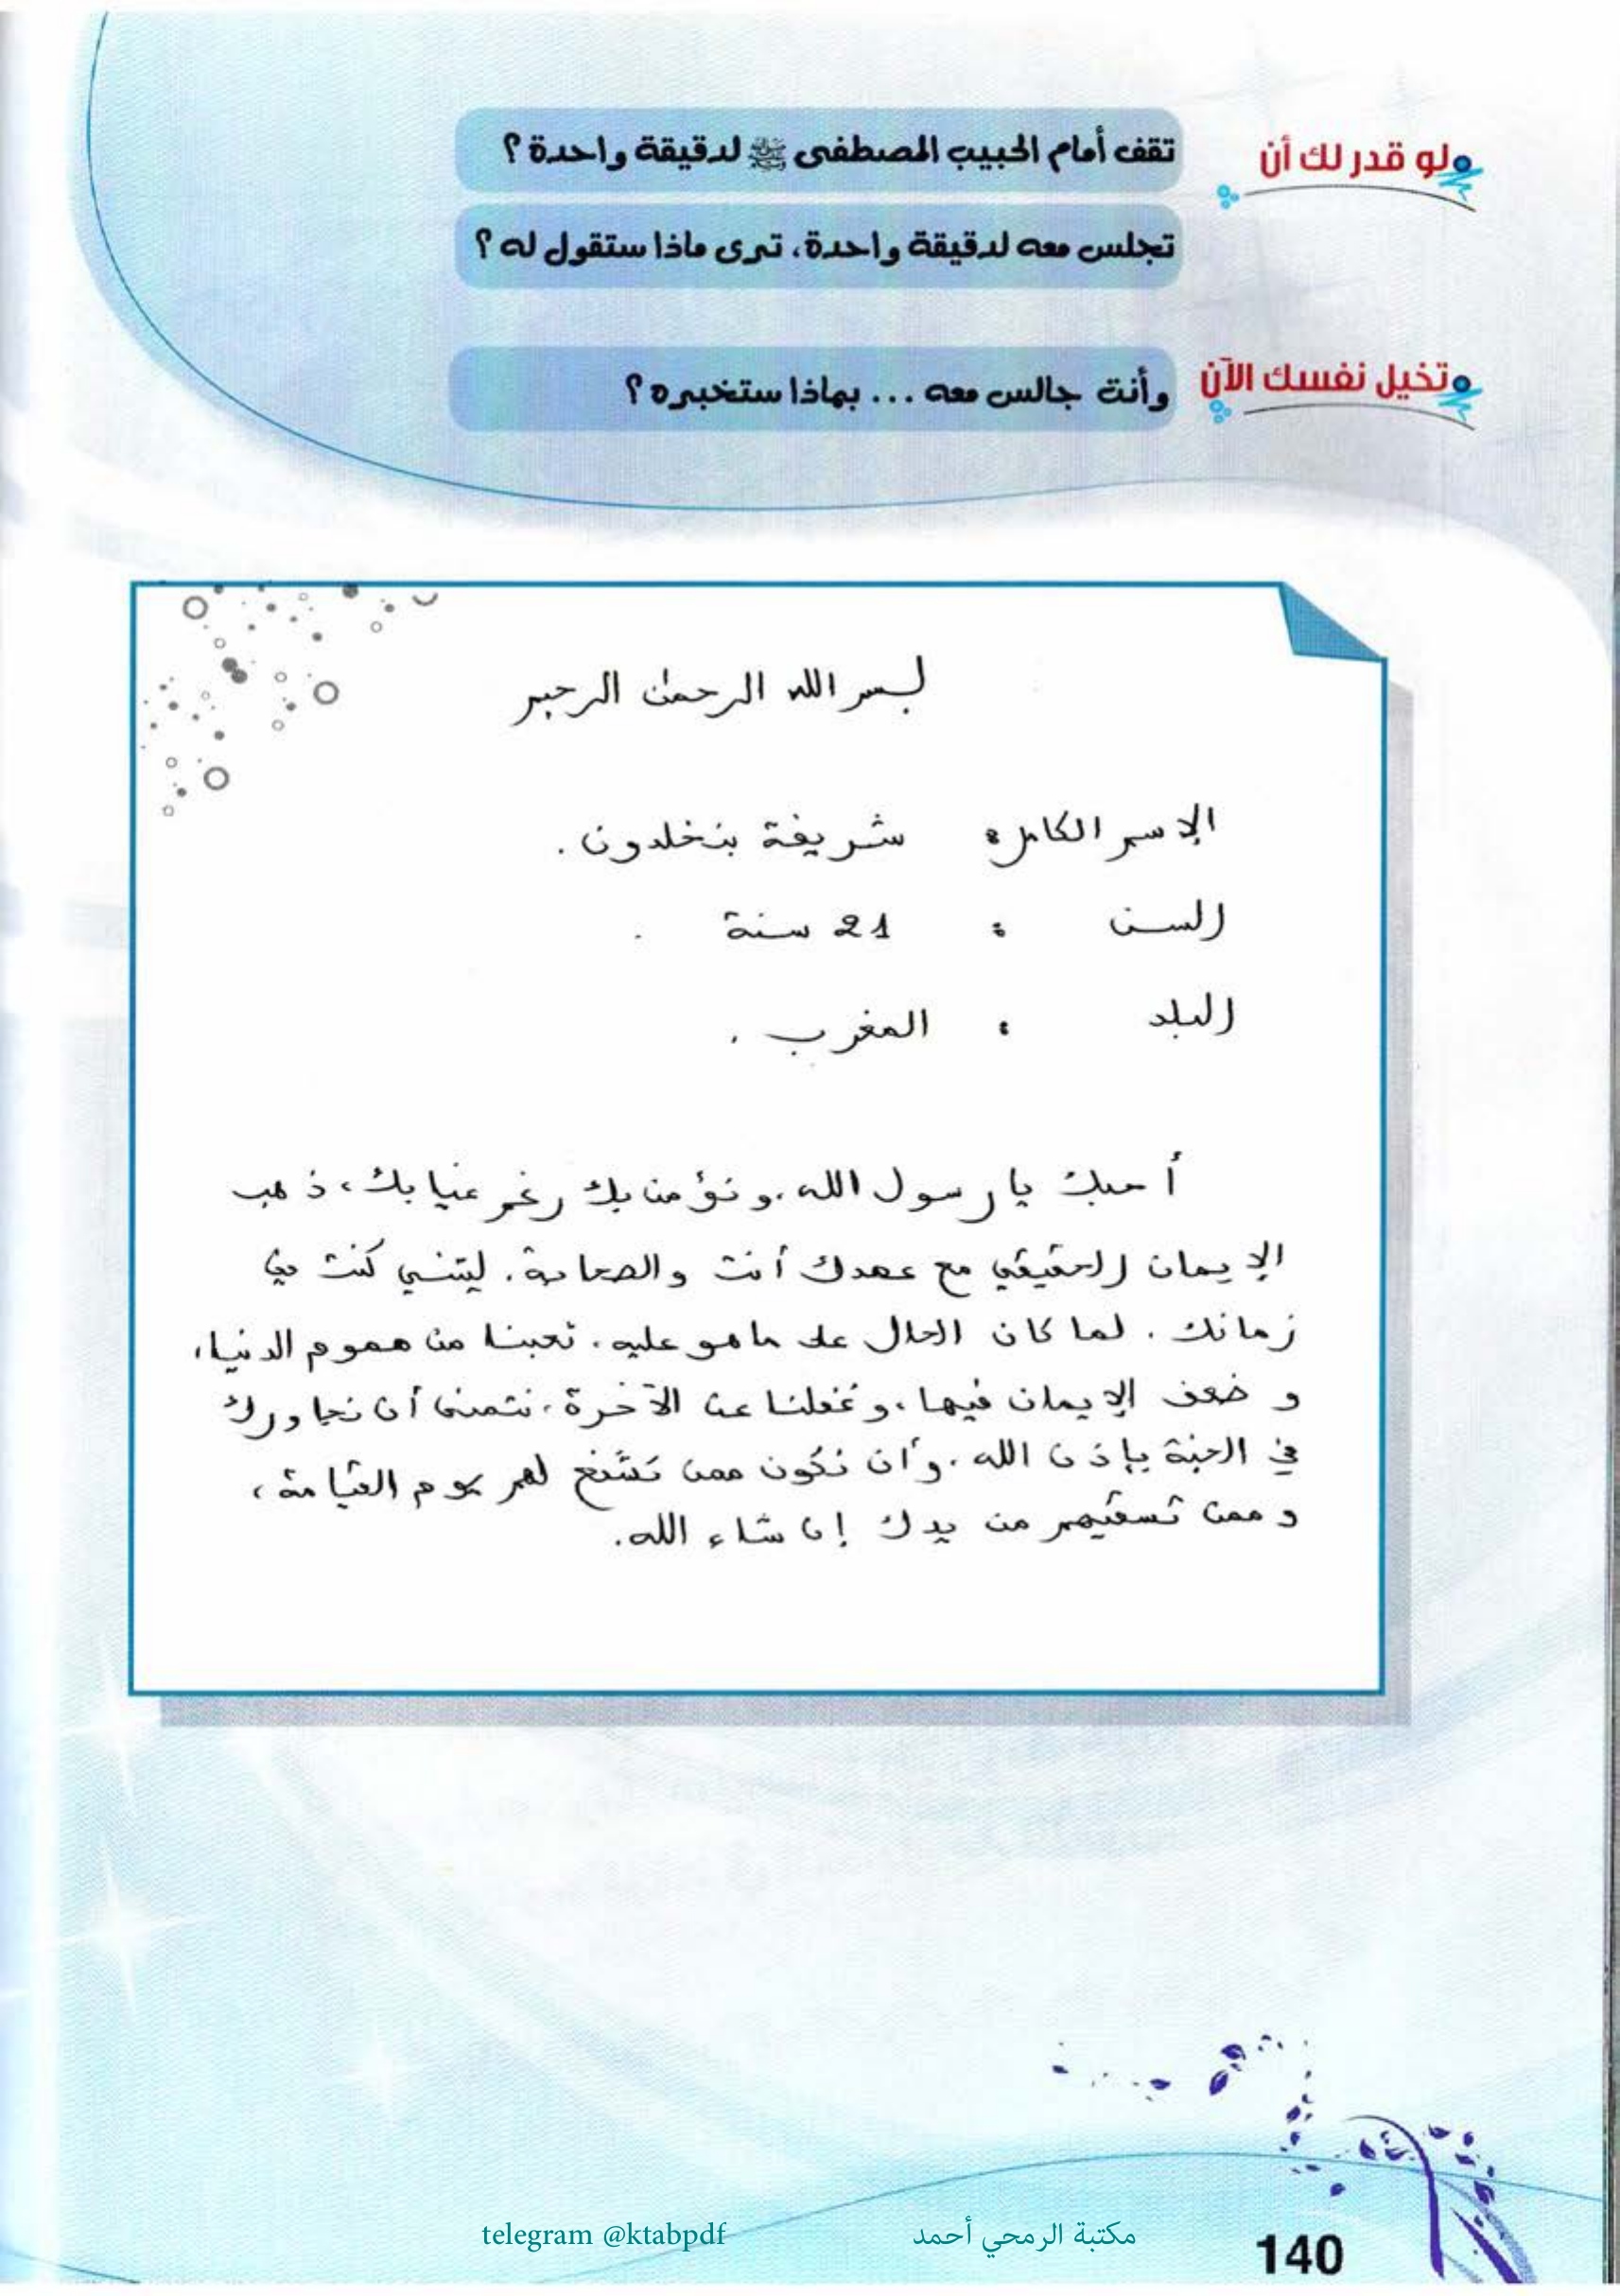 لو قدر لك أن تقف أمام الحبيب المصطفى ﷺ لدقيقة واحدة ؟
تجلس معه لدقيقة واحدة، ترى ماذا ستقول له ؟
وتخيل نفسك الآن وأنت جالس معه ... بماذا ستخبره ؟
بسم الله الرحمن الرحيم
الإسم الكامل : شريفة بنخلدون .
السن : 21 سنة .
البلد : المغرب .
أحبك يا رسول الله، ونؤمن بك رغم غيابك، ذهب
الإيمان الحقيقي مع عهدك أنت والصحابة. ليتني كنت في
زمانك . لما كان الحال على ما هو عليه. تعبنا من هموم الدنيا،
و ضعف الإيمان فيها، وغفلنا عن الآخرة، نتمنى أن نجاورك
في الجنة بإذن الله، وأن نكون ممن تشفع لهم يوم القيامة،
و ممن تسقيهم من يدك إن شاء الله.
telegram @ktabpdf مكتبة الرمحي أحمد
140